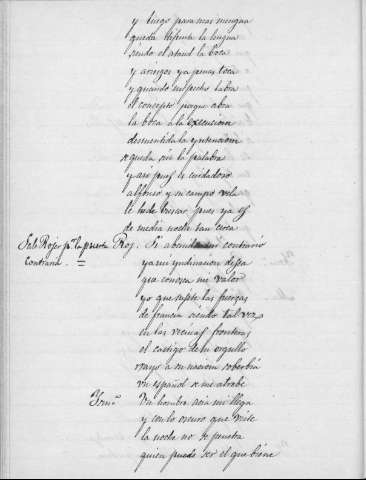 y luego para mas mengua
queda difunta la lengua
siendo el ataud la boca
y a riesgos ya penas toca
y quando mi pecho labra
el consepto porque abra
la boca a la execusion
desmentida la yntencion
queda sin la palabra
y asi pues le cuidadoso
alfonso y su campo vela
le hede buscar, pues ya es
de media noche tan cerca
Sale Roje pr la puerta Roj. Si aben contrario
contraria. ya mi yndinacion desea
que conosca mi valor
yo que supe las fuerzas
de francia siendo tal vez
en las vecinas fronteras
el castigo de su orgullo
rayo a su nacion soberbia
un español se me atrebe
Un hombre acia mi llega
y con lo oscuro que viste
la noche no se penetra
quien puede ser el que biene